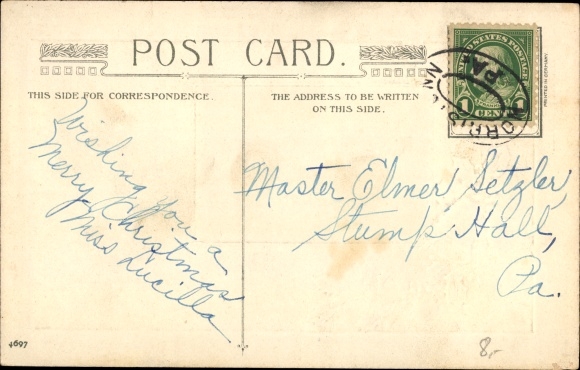 POST CARD.
THIS SIDE FOR CORRESPONDENCE.
THE ADDRESS TO BE WRITTEN
ON THIS SIDE.
UNITED STATES POSTAGE
1 CENT 1
PA.
PRINTED IN GERMANY
Wishing you a
Merry Christmas
Miss Lucilla
Master Elmer Setzler,
Stump Hall,
Pa.
4697
8,-